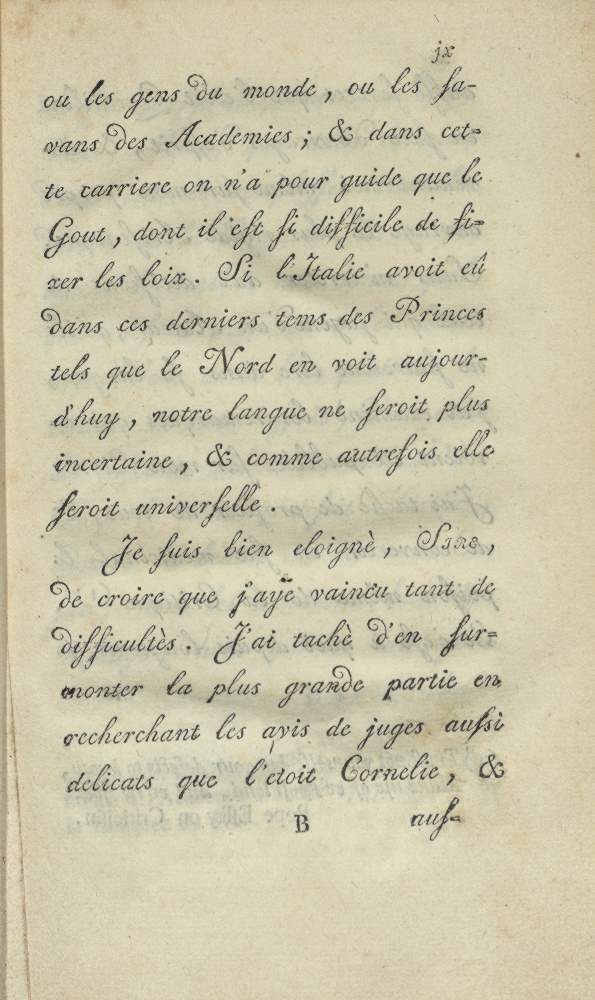 jx
ou les gens du monde, ou les ſa-
vans des Academies; & dans cet=
te carriere on n'a pour guide que le
Gout, dont il eſt ſi difficile de fi=
xer les loix. Si l'Italie avoit eû
dans ces derniers tems des Princes
tels que le Nord en voit aujour-
d'huy, notre langue ne ſeroit plus
incertaine, & comme autrefois elle
ſeroit univerſelle.
Je ſuis bien eloignè, Sire,
de croire que j'aÿe vaincu tant de
difficultès. J'ai tachè d'en ſur=
monter la plus grande partie en
recherchant les avis de juges auſſi
delicats que l'etoit Cornelie, &
B auſ=